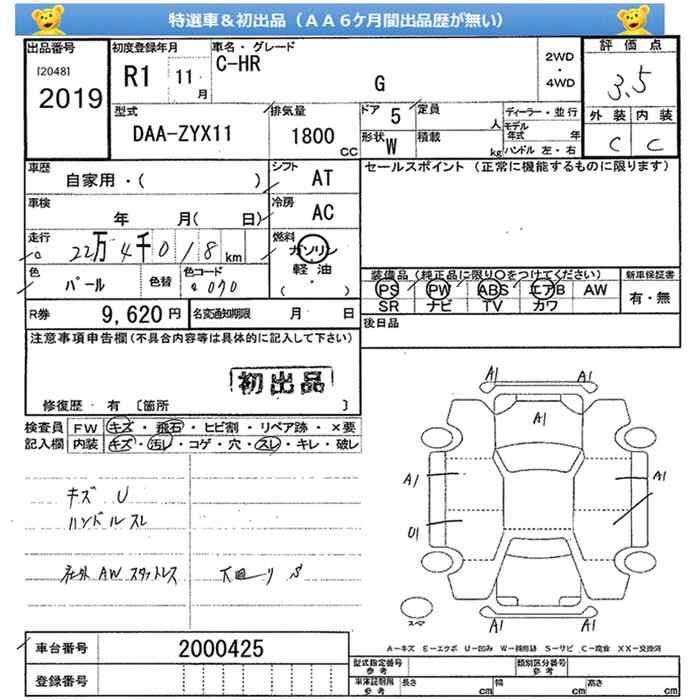 特選車&初出品（AA6ケ月間出品歴が無い）
出品番号
[2048]
2019
初度登録年月
R1 11 月
車名・グレード
C-HR
G
2WD
・
4WD
評価点
3.5
外装 内装
C C
型式
DAA-ZYX11
排気量
1800 CC
ドア 5
定員 人
形状 W
積載 kg
ディーラー・並行
モデル年式 年
ハンドル 左・右
車歴
自家用・( )
シフト
AT
セールスポイント（正常に機能するものに限ります）
車検
年 月( 日)
冷房
AC
走行
22万4千018 km
燃料
ガソリン
軽油
( ・ )
色
パール
色替
色コード
070
装備品（純正品に限り○をつけてください）
PS PW ABS エアB AW
SR ナビ TV カワ
新車保証書
有・無
R券 9,620円
名変通知期限 月 日
後日品
注意事項申告欄(不具合内容等は具体的に記入して下さい)
初出品
修復歴・有 〔箇所 〕
検査員記入欄
FW キズ・飛石・ヒビ割・リペア跡・×要
内装 キズ・汚レ・コゲ・穴・スレ・キレ・破レ
キズ U
ハンドルスレ
社外 AW スタットレス
下回り S
A1 A1
A1
A1 A1
U1
A1 A1
スペア
A-キズ E-エクボ U-凹み W-補修跡 S-サビ C-腐食 XX-交換済
車台番号 2000425
登録番号
型式指定番号 参考
類別区分番号 参考
車庫証明用 参考
長さ cm 幅 cm 高さ cm